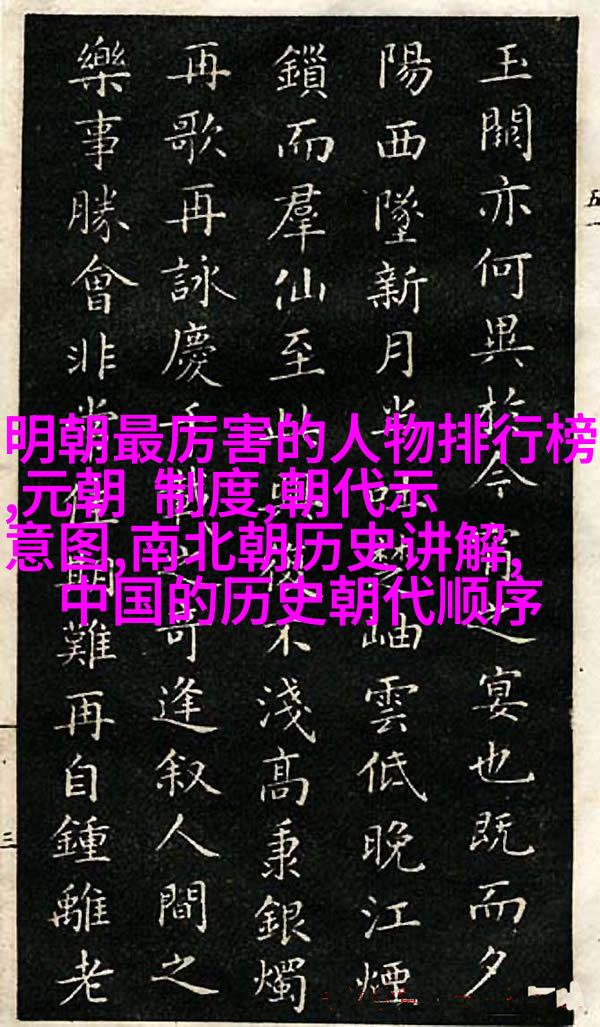 明朝最厉害的人物排行榜
,元朝 制度,朝代示
意图,南北朝历史讲解,
中国的历史朝代顺序
玉闕亦何異於今宵之宴也既而夕
陽西墜新月半吐楚岫雲低晚江煙
鎖而羣仙至此興復不淺高秉銀燭
再歌再詠慶千載之奇逢叙人間之
樂事勝會非常佳期難再自鍾離老